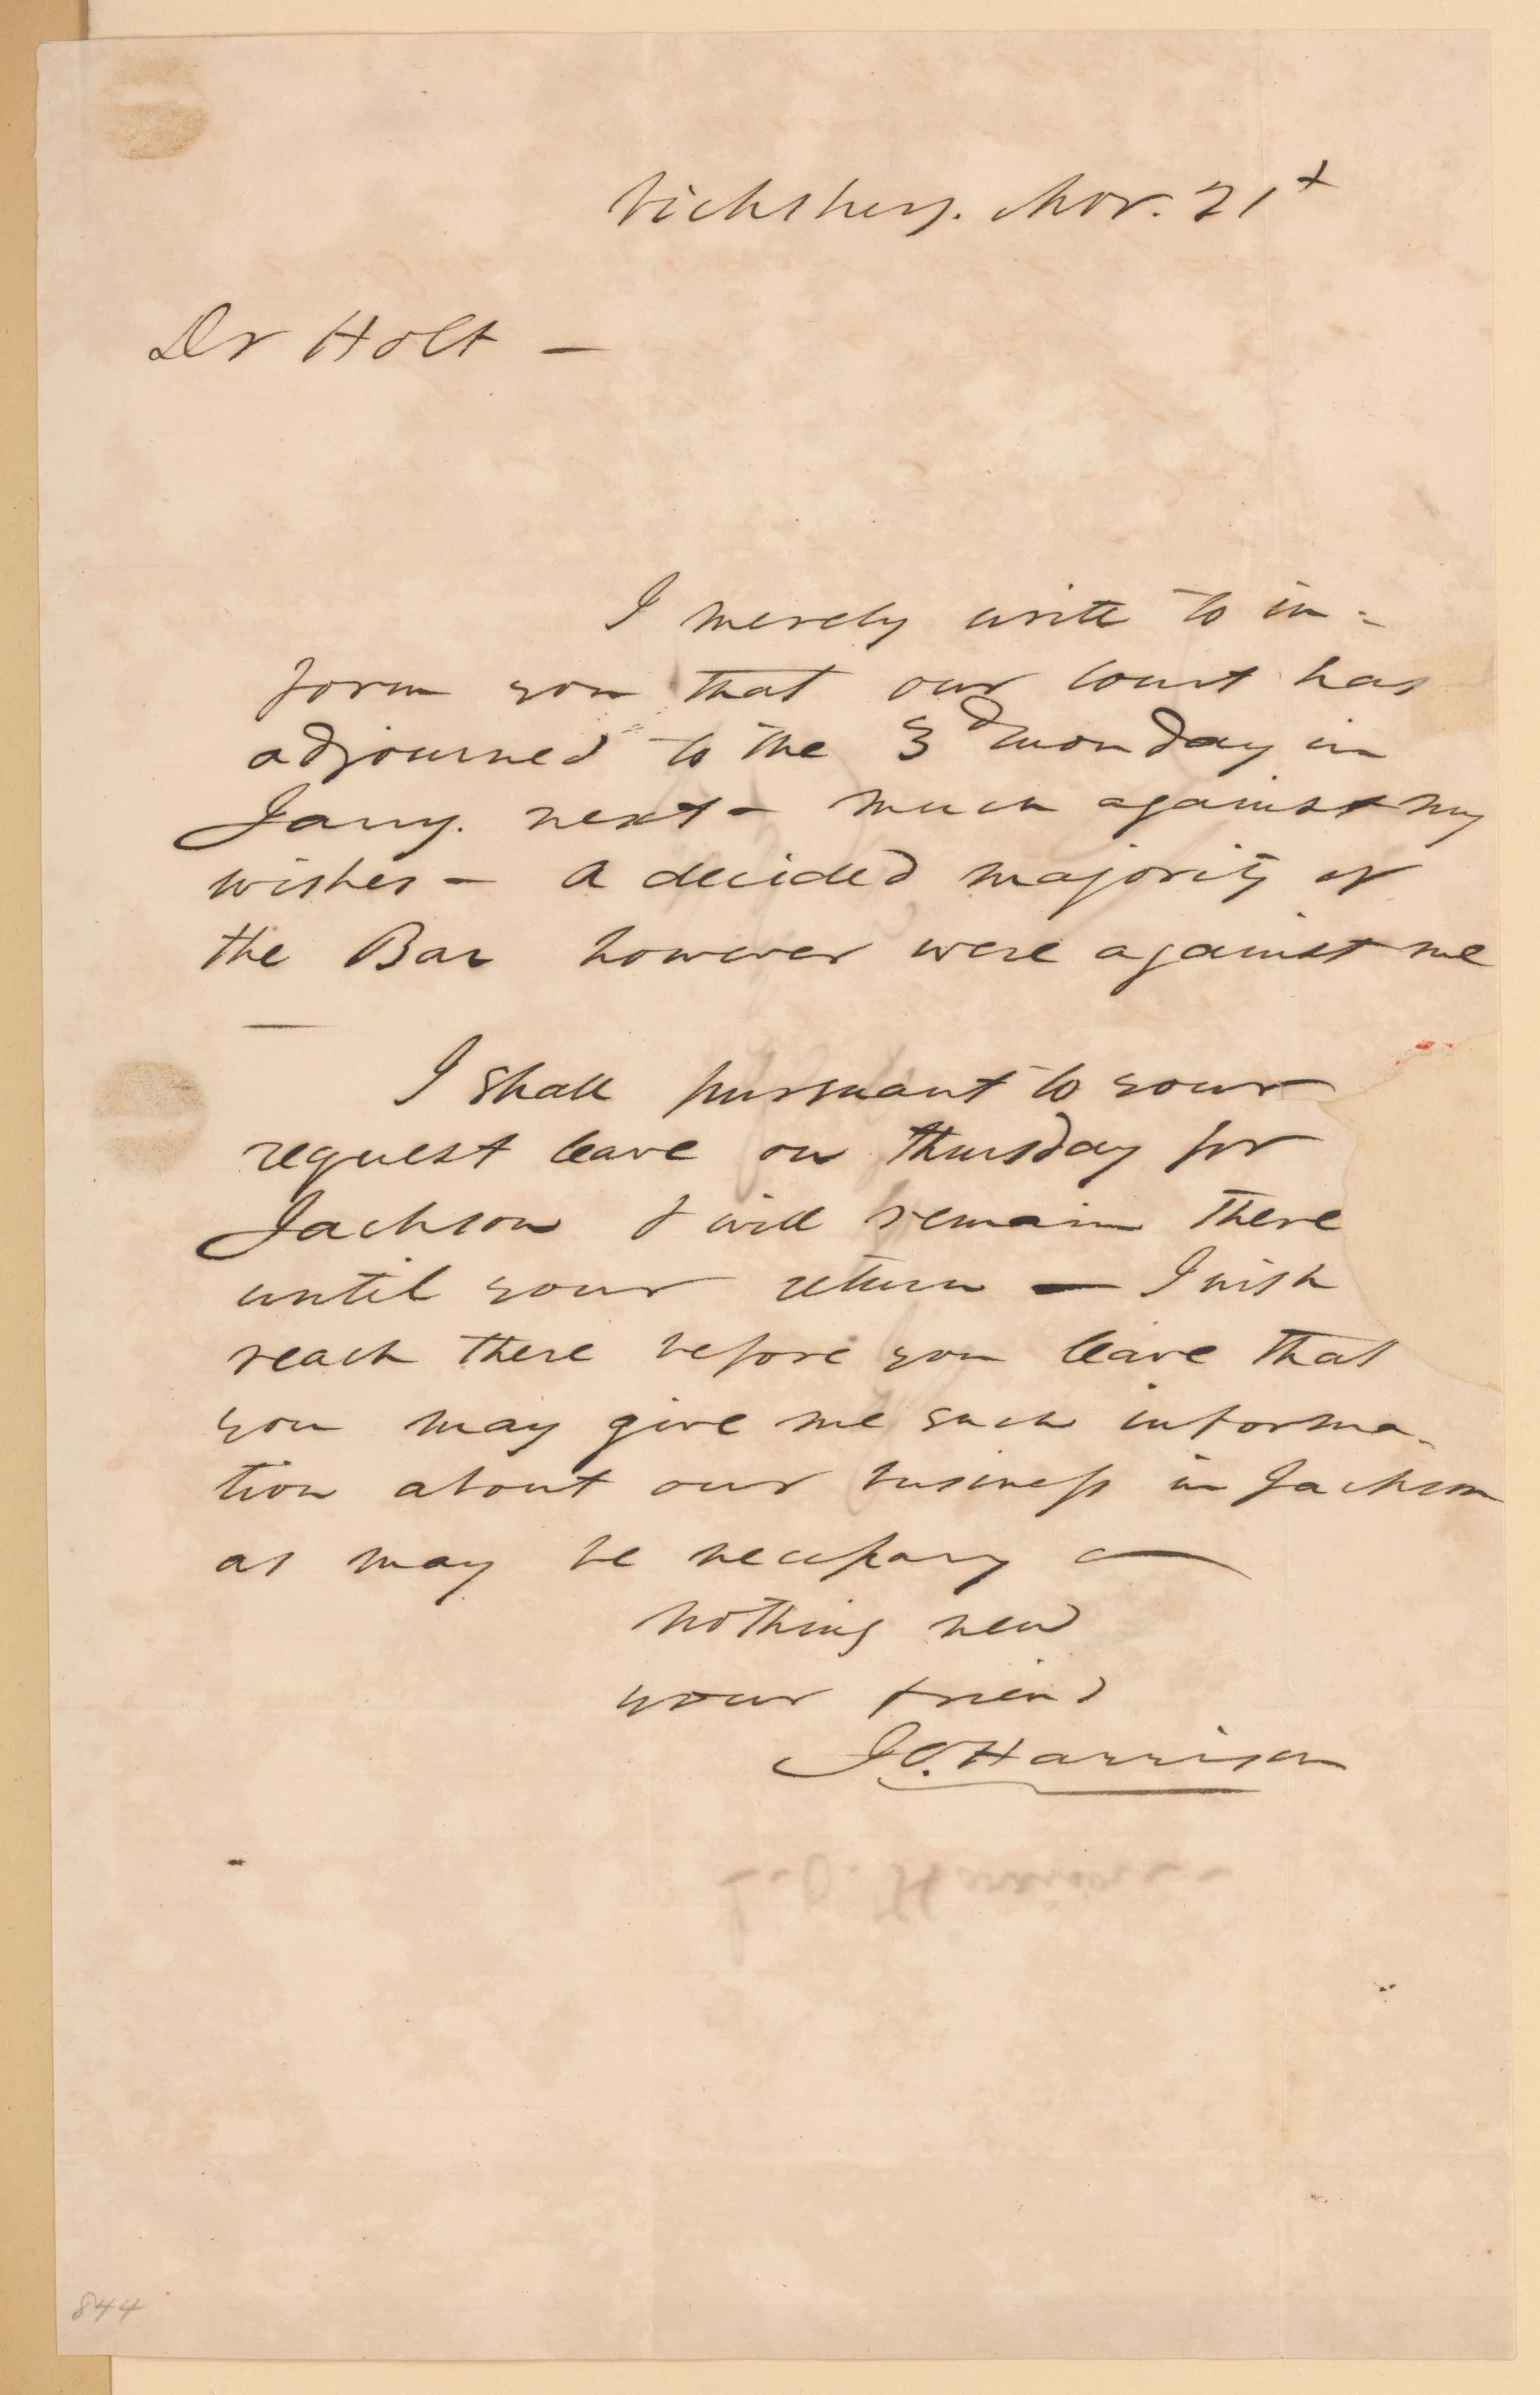 Vicksburg. Nov. 21t
Dr Holt —
I merely write to in=
form you that our Court has
adjourned to the 3d Monday in
Jany. next - much against my
wishes - A decided majority of
the Bar however were against me
—
I shall pursuant to your
request leave on Thursday for
Jackson & will remain there
until your return — I wish
reach there before you leave that
you may give me such informa-
tion about our business in Jackson
as may be necessary —
Nothing new
your friend
J O. Harrison
844